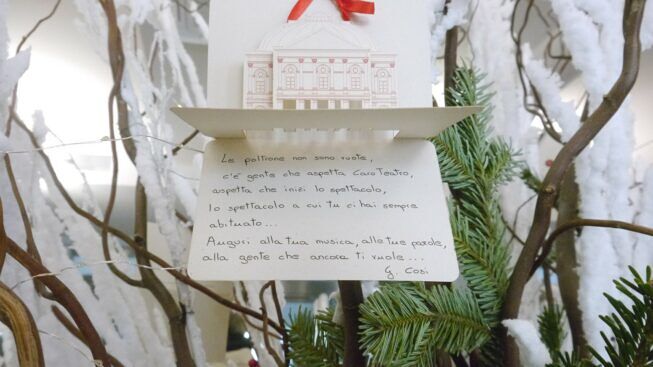 Le poltrone non sono vuote,
c'è gente che aspetta Caro Teatro,
aspetta che inizi lo spettacolo,
lo spettacolo a cui tu ci hai sempre
abituato...
Auguri alla tua musica, alle tue parole,
alla gente che ancora ti vuole...
G. Cosi